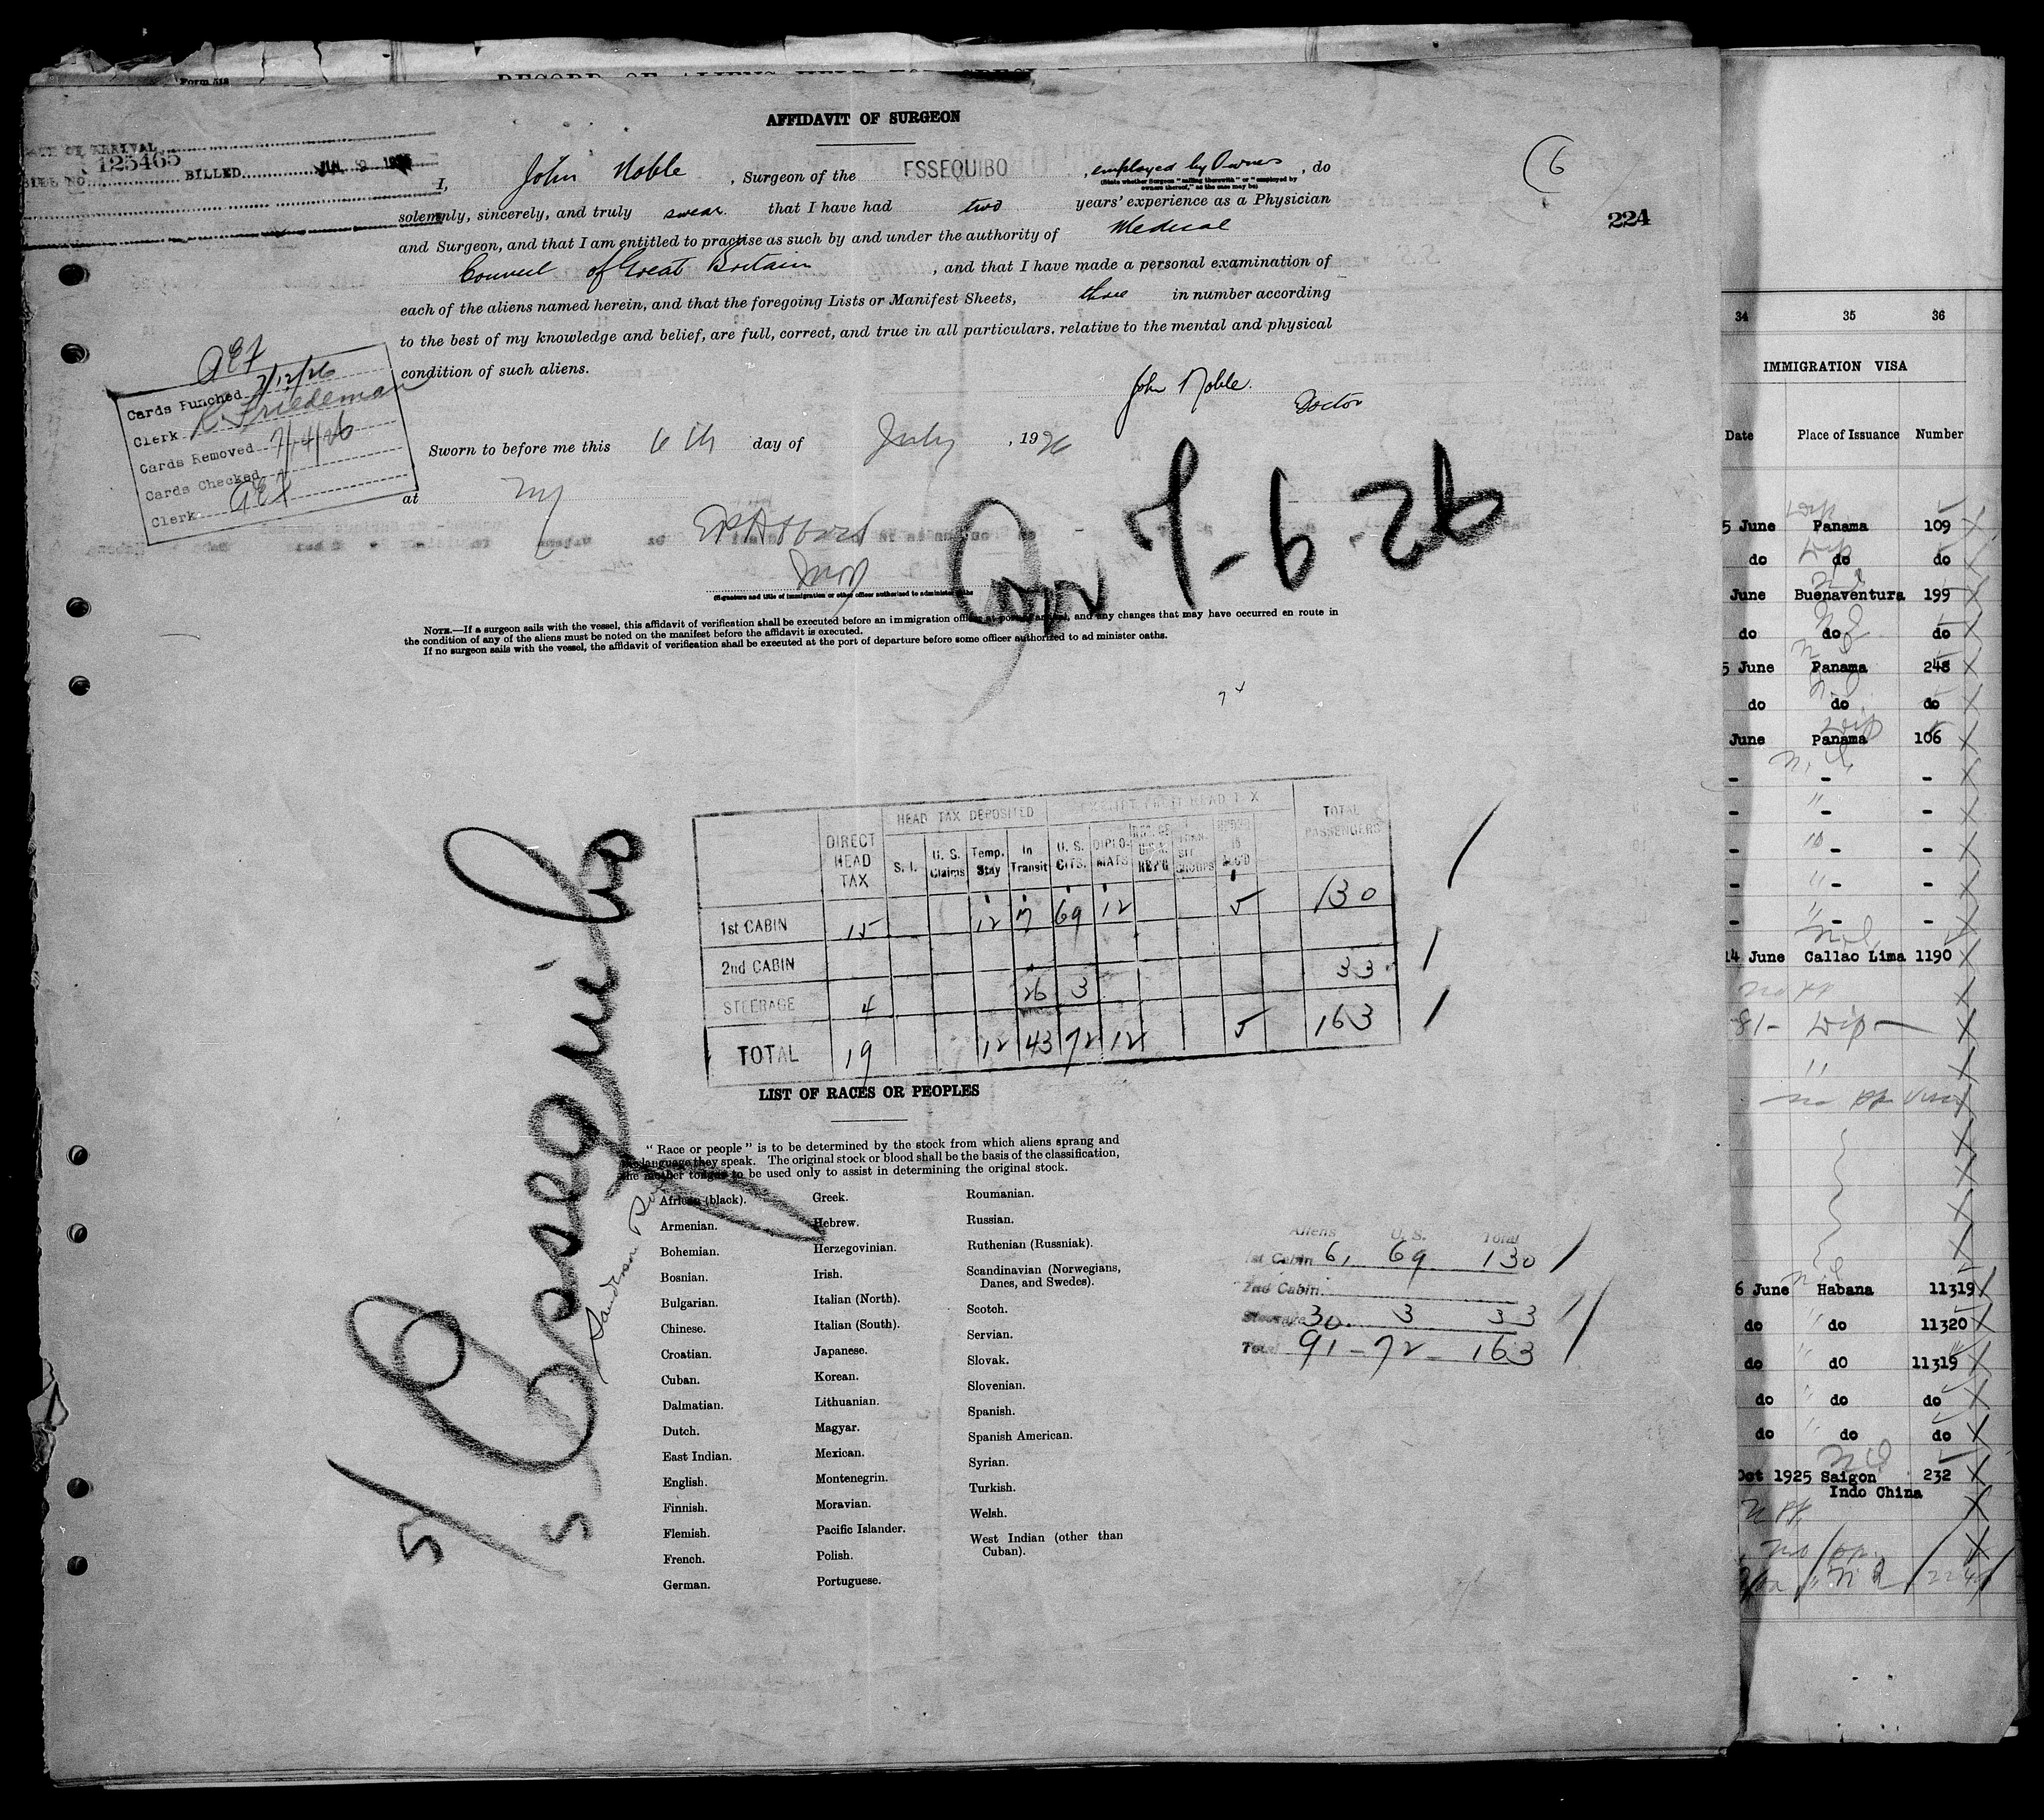 Form 518
AFFIDAVIT OF SURGEON
125465
BILLED
I, John Noble, Surgeon of the ESSEQUIBO, employed by Owners, do
(State whether Surgeon "sailing therewith" or "employed by
owners thereof," as the case may be)
solemnly, sincerely, and truly swear that I have had two years' experience as a Physician
and Surgeon, and that I am entitled to practise as such by and under the authority of Medical
Council of Great Britain, and that I have made a personal examination of
each of the aliens named herein, and that the foregoing Lists or Manifest Sheets, three in number according
to the best of my knowledge and belief, are full, correct, and true in all particulars, relative to the mental and physical
condition of such aliens.
6
224
John Noble.
Doctor
Cards Punched 7/12/26
Clerk K. Friedeman
Cards Removed
Cards Checked
Clerk
Sworn to before me this 6th day of July, 1926
at NY
7-6-26
NOTE.—If a surgeon sails with the vessel, this affidavit of verification shall be executed before an immigration officer at port of arrival, and any changes that may have occurred en route in
the condition of any of the aliens must be noted on the manifest before the affidavit is executed.
If no surgeon sails with the vessel, the affidavit of verification shall be executed at the port of departure before some officer authorized to ad minister oaths.
HEAD TAX DEPOSITED
EXEMPT FROM HEAD TAX
DIRECT HEAD TAX
S. I.
U. S. Claims
Temp. Stay
In Transit
U. S. CITS.
DIPLOMATS
TOTAL PASSENGERS
1st CABIN 15 12 69 12 5 130
2nd CABIN
STEERAGE 4 26 3 33
TOTAL 19 12 43 72 12 5 163
Essequibo
5
5
LIST OF RACES OR PEOPLES
"Race or people" is to be determined by the stock from which aliens sprang and
the language they speak. The original stock or blood shall be the basis of the classification,
the mother tongue to be used only to assist in determining the original stock.
African (black).
Armenian.
Bohemian.
Bosnian.
Bulgarian.
Chinese.
Croatian.
Cuban.
Dalmatian.
Dutch.
East Indian.
English.
Finnish.
Flemish.
French.
German.
Greek.
Hebrew.
Herzegovinian.
Irish.
Italian (North).
Italian (South).
Japanese.
Korean.
Lithuanian.
Magyar.
Mexican.
Montenegrin.
Moravian.
Pacific Islander.
Polish.
Portuguese.
Roumanian.
Russian.
Ruthenian (Russniak).
Scandinavian (Norwegians,
Danes, and Swedes).
Scotch.
Servian.
Slovak.
Slovenian.
Spanish.
Spanish American.
Syrian.
Turkish.
Welsh.
West Indian (other than
Cuban).
Aliens U. S. Total
1st Cabin 61 69 130
2nd Cabin
Steerage 30 3 33
Total 91-72-163
34 35 36
IMMIGRATION VISA
Date Place of Issuance Number
5 June Panama 109
do do do
June Buenaventura 199
do do do
5 June Panama 248
do do do
June Panama 106
- - -
- - -
- - -
- - -
- - -
14 June Callao Lima 1190
6 June Habana 11319
do do 11320
do dO 11319
do do do
do do do
Oct 1925 Saigon 232
Indo China